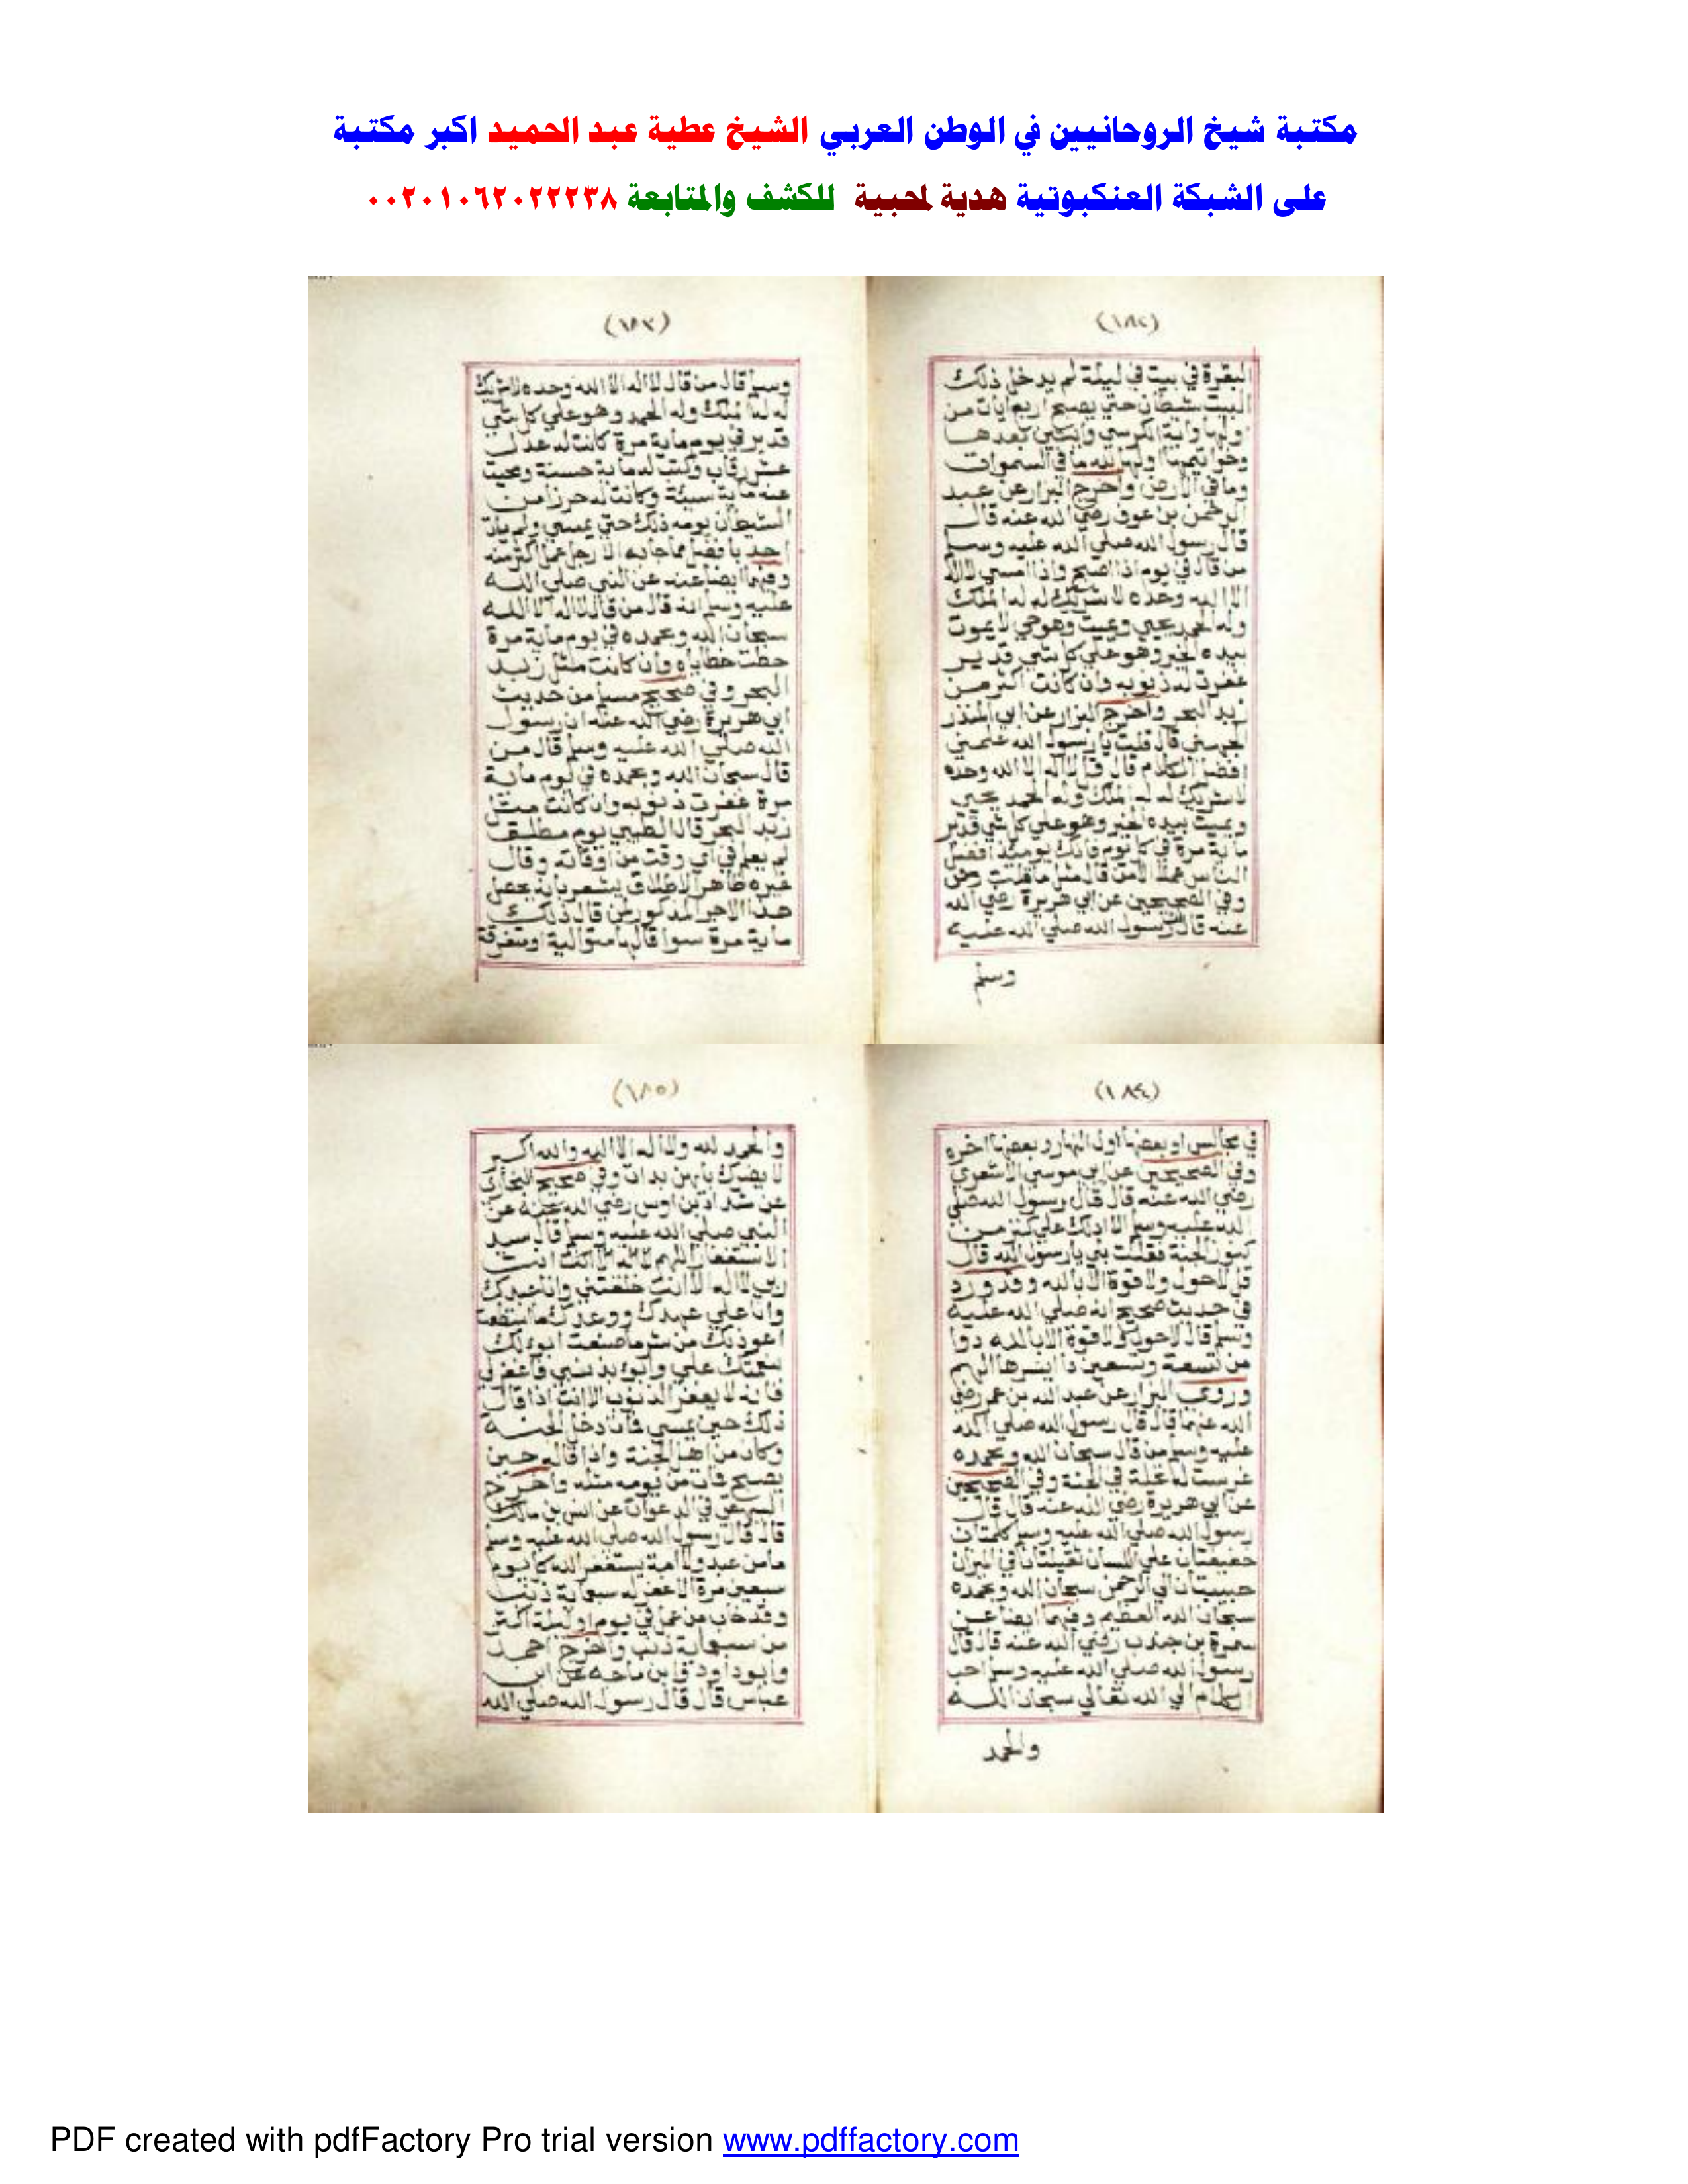 مكتبة شيخ الروحانيين في الوطن العربي الشيخ عطية عبد الحميد اكبر مكتبة
على الشبكة العنكبوتية هدية لمحبية للكشف والمتابعة ٠٠٢٠١٠٦٢٠٢٢٢٣٨
(١٨٢)
البقرة في بيت في ليلة لم يدخل ذلك
البيت شيطان حتي يصبح اربع ايات من
اولها واية الكرسي وايتين بعدها
وخواتيمها اولها لله ما في السموات
وما في الارض واخرج البزار عن عبد
الرحمن بن عوف رضي الله عنه قال
قال رسول الله صلي الله عليه وسلم
من قال في يوم اذا اصبح واذا امسي لااله
الا الله وحده لا شريك له له الملك
وله الحمد يحيي ويميت وهو حي لا يموت
بيده الخير وهو علي كل شي قدير
غفرت له ذنوبه وان كانت اكثر من
زبد البحر واخرج البزار عن ابي المنذر
الجهني قال قلت يا رسول الله علمني
افضل الكلام قال قل لااله الا الله وحده
لا شريك له له الملك وله الحمد يحيي
ويميت بيده الخير وهو علي كل شي قدير
ماية مرة في كل يوم فانك يوميذ افضل
الناس عملا الا من قال مثل ما قلت
وفي الصحيحين عن ابي هريرة رضي الله
عنه قال رسول الله صلي الله عليه
وسلم
(١٨٣)
وسلم قال من قال لااله الا الله وحده لا شريك
له له الملك وله الحمد وهو علي كل شي
قدير في يوم ماية مرة كانت له عدل
عشر رقاب وكتب له ماية حسنة ومحيت
عنه ماية سيئة وكانت له حرزا من
الشيطان يومه ذلك حتي يمسي ولم يات
احد بافضل مما جا به الا رجل عمل اكثر منه
وفيهما ايضا عنه عن النبي صلي الله
عليه وسلم انه قال من قال لااله الا الله
سبحان الله وبحمده في يوم ماية مرة
حطت خطاياه وان كانت مثل زبد
البحر وفي صحيح مسلم من حديث
ابي هريرة رضي الله عنه ان رسول
الله صلي الله عليه وسلم قال من
قال سبحان الله وبحمده في يوم ماية
مرة غفرت ذنوبه وان كانت مثل
زبد البحر قال الطيبي يوم مطلق
لم يعلم في اي وقت من اوقاته وقال
غيره ظاهر الاطلاق يشعر بانه يحصل
هذا الاجر المذكور لمن قال ذلك
ماية مرة سوا قالها متوالية او متفرقة
(١٨٤)
في مجالس او بعضها اول النهار وبعضها اخره
وفي الصحيحين عن ابي موسي الاشعري
رضي الله عنه قال قال رسول الله صلي
الله عليه وسلم الا ادلك علي كنز من
كنوز الجنة فقلت بلي يا رسول الله قال
قل لاحول ولا قوة الا بالله وقد ورد
في حديث صحيح انه صلي الله عليه
وسلم قال لاحول ولا قوة الا بالله دوا
من تسعة وتسعين دا ايسرها الهم
وروي البزار عن عبد الله بن عمر رضي
الله عنهما قال قال رسول الله صلي الله
عليه وسلم من قال سبحان الله وبحمده
غرست له نخلة في الجنة وفي الصحيحين
عن ابي هريرة رضي الله عنه قال قال
رسول الله صلي الله عليه وسلم كلمتان
خفيفتان علي اللسان ثقيلتان في الميزان
حبيبتان الي الرحمن سبحان الله وبحمده
سبحان الله العظيم وفيهما ايضا عن
سمرة بن جندب رضي الله عنه قال قال
رسول الله صلي الله عليه وسلم احب
الكلام الي الله تعالي سبحان الله
والحمد
(١٨٥)
والحمد لله ولا اله الا الله والله اكبر
لا يضرك بايهن بدات وفي صحيح البخاري
عن شداد بن اوس رضي الله عنه عن
النبي صلي الله عليه وسلم قال سيد
الاستغفار اللهم انت
ربي لا اله الا انت خلقتني وانا عبدك
وانا علي عهدك ووعدك ما استطعت
اعوذ بك من شر ما صنعت ابوء لك
بنعمتك علي وابوء بذنبي فاغفر لي
فانه لا يغفر الذنوب الا انت اذا قال
ذلك حين يمسي فمات دخل الجنة
وكان من اهل الجنة واذا قاله حين
يصبح فمات من يومه مثله واخرج
البيهقي في الدعوات عن انس بن مالك
قال قال رسول الله صلي الله عليه وسلم
ما من عبد ولا امة يستغفر الله كل يوم
سبعين مرة الا غفر له سبعماية ذنب
وقد خاب من عمل في يوم او ليلة اكثر
من سبعماية ذنب واخرج احمد
وابو داود وابن ماجه عن ابن
عباس قال قال رسول الله صلي الله
PDF created with pdfFactory Pro trial version www.pdffactory.com